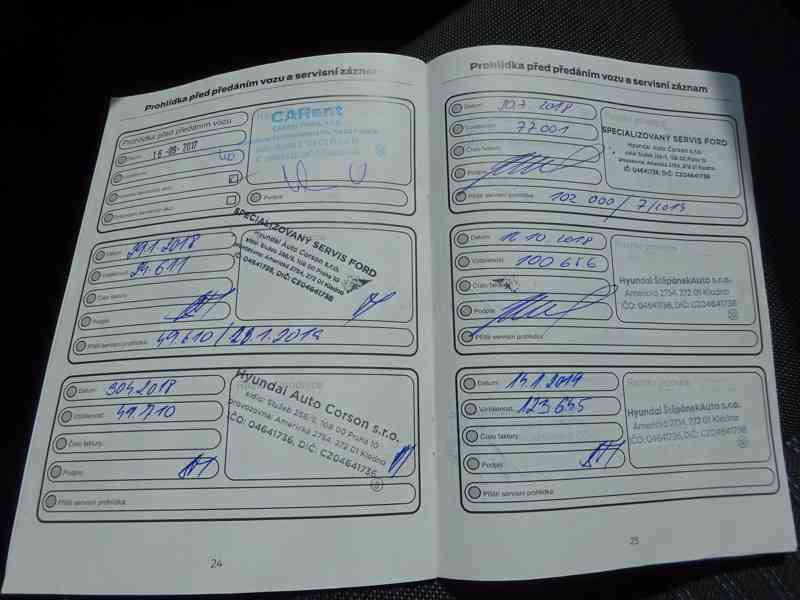 Prohlídka před předáním vozu a servisní záznam
Prohlídka před předáním vozu
Datum: 16 -09- 2017
CARent
CARent Praha, s.r.o.
Podpis:
Datum: 29.1.2018
Vzdálenost: 24.611
Číslo faktury:
Podpis:
Příští servisní prohlídka: 49.610 / 28.1.2019
SPECIALIZOVANÝ SERVIS FORD
Hyundai Auto Corson s.r.o.
sídlo: Služeb 256/5, 108 00 Praha 10
provozovna: Americká 2754, 272 01 Kladno
IČO: 04641736, DIČ: CZ04641736
Datum: 30.4.2018
Vzdálenost: 49.710
Číslo faktury:
Podpis:
Příští servisní prohlídka:
Hyundai Auto Corson s.r.o.
sídlo: Služeb 256/5, 108 00 Praha 10
provozovna: Americká 2754, 272 01 Kladno
IČO: 04641736, DIČ: CZ04641736
24
Prohlídka před předáním vozu a servisní záznam
Datum: 20.7. 2018
Vzdálenost: 77.001
Číslo faktury:
Podpis:
Příští servisní prohlídka: 102 000 / 7/2019
SPECIALIZOVANÝ SERVIS FORD
Hyundai Auto Corson s.r.o.
sídlo: Služeb 256/5, 108 00 Praha 10
provozovna: Americká 2754, 272 01 Kladno
IČ: 04641736, DIČ: CZ04641736
Datum: 12.10.2018
Vzdálenost: 100 656
Číslo faktury:
Podpis:
Příští servisní prohlídka:
Hyundai ŠtěpánekAuto s.r.o.
Americká 2754, 272 01 Kladno
IČO: 04641736, DIČ: CZ04641736
Datum: 14.1.2019
Vzdálenost: 123 645
Číslo faktury:
Podpis:
Příští servisní prohlídka:
Hyundai ŠtěpánekAuto s.r.o.
Americká 2754, 272 01 Kladno
IČO: 04641736, DIČ: CZ04641736
25